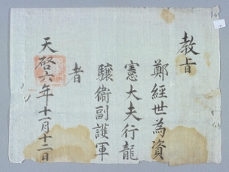 教旨
鄭經世為資
憲大夫行龍
驤衛副護軍
者
天啓六年十一月十二日